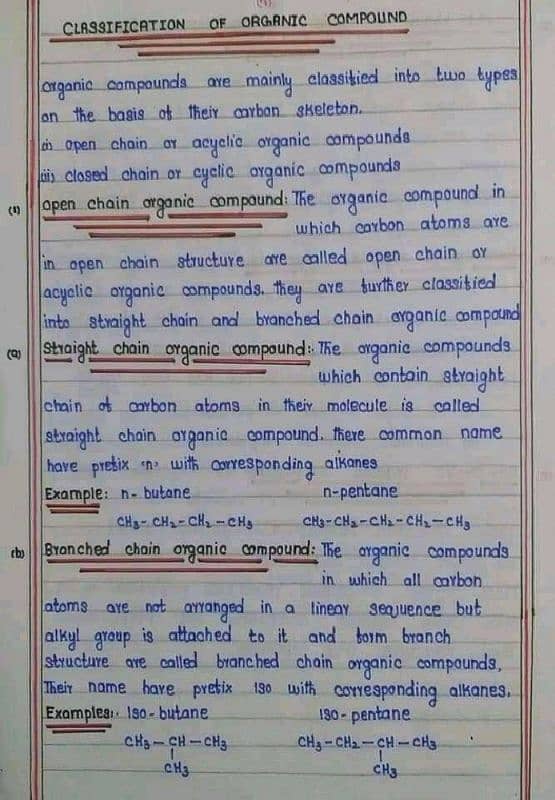 (1)
CLASSIFICATION OF ORGANIC COMPOUND
organic compounds are mainly classified into two types
on the basis of their carbon skeleton.
(i) open chain or acyclic organic compounds
(ii) closed chain or cyclic organic compounds
(1) open chain organic compound: The organic compound in
which carbon atoms are
in open chain structure are called open chain or
acyclic organic compounds. they are further classified
into straight chain and branched chain organic compound
(a) Straight chain organic compound:- The organic compounds
which contain straight
chain of carbon atoms in their molecule is called
straight chain organic compound. there common name
have prefix 'n' with corresponding alkanes
Example: n-butane n-pentane
CH₃-CH₂-CH₂-CH₃ CH₃-CH₂-CH₂-CH₂-CH₃
(b) Branched chain organic compound: The organic compounds
in which all carbon
atoms are not arranged in a linear sequence but
alkyl group is attached to it and form branch
structure are called branched chain organic compounds,
Their name have prefix iso with corresponding alkanes.
Examples:- Iso-butane Iso-pentane
CH₃-CH-CH₃ CH₃-CH₂-CH-CH₃
CH₃ CH₃